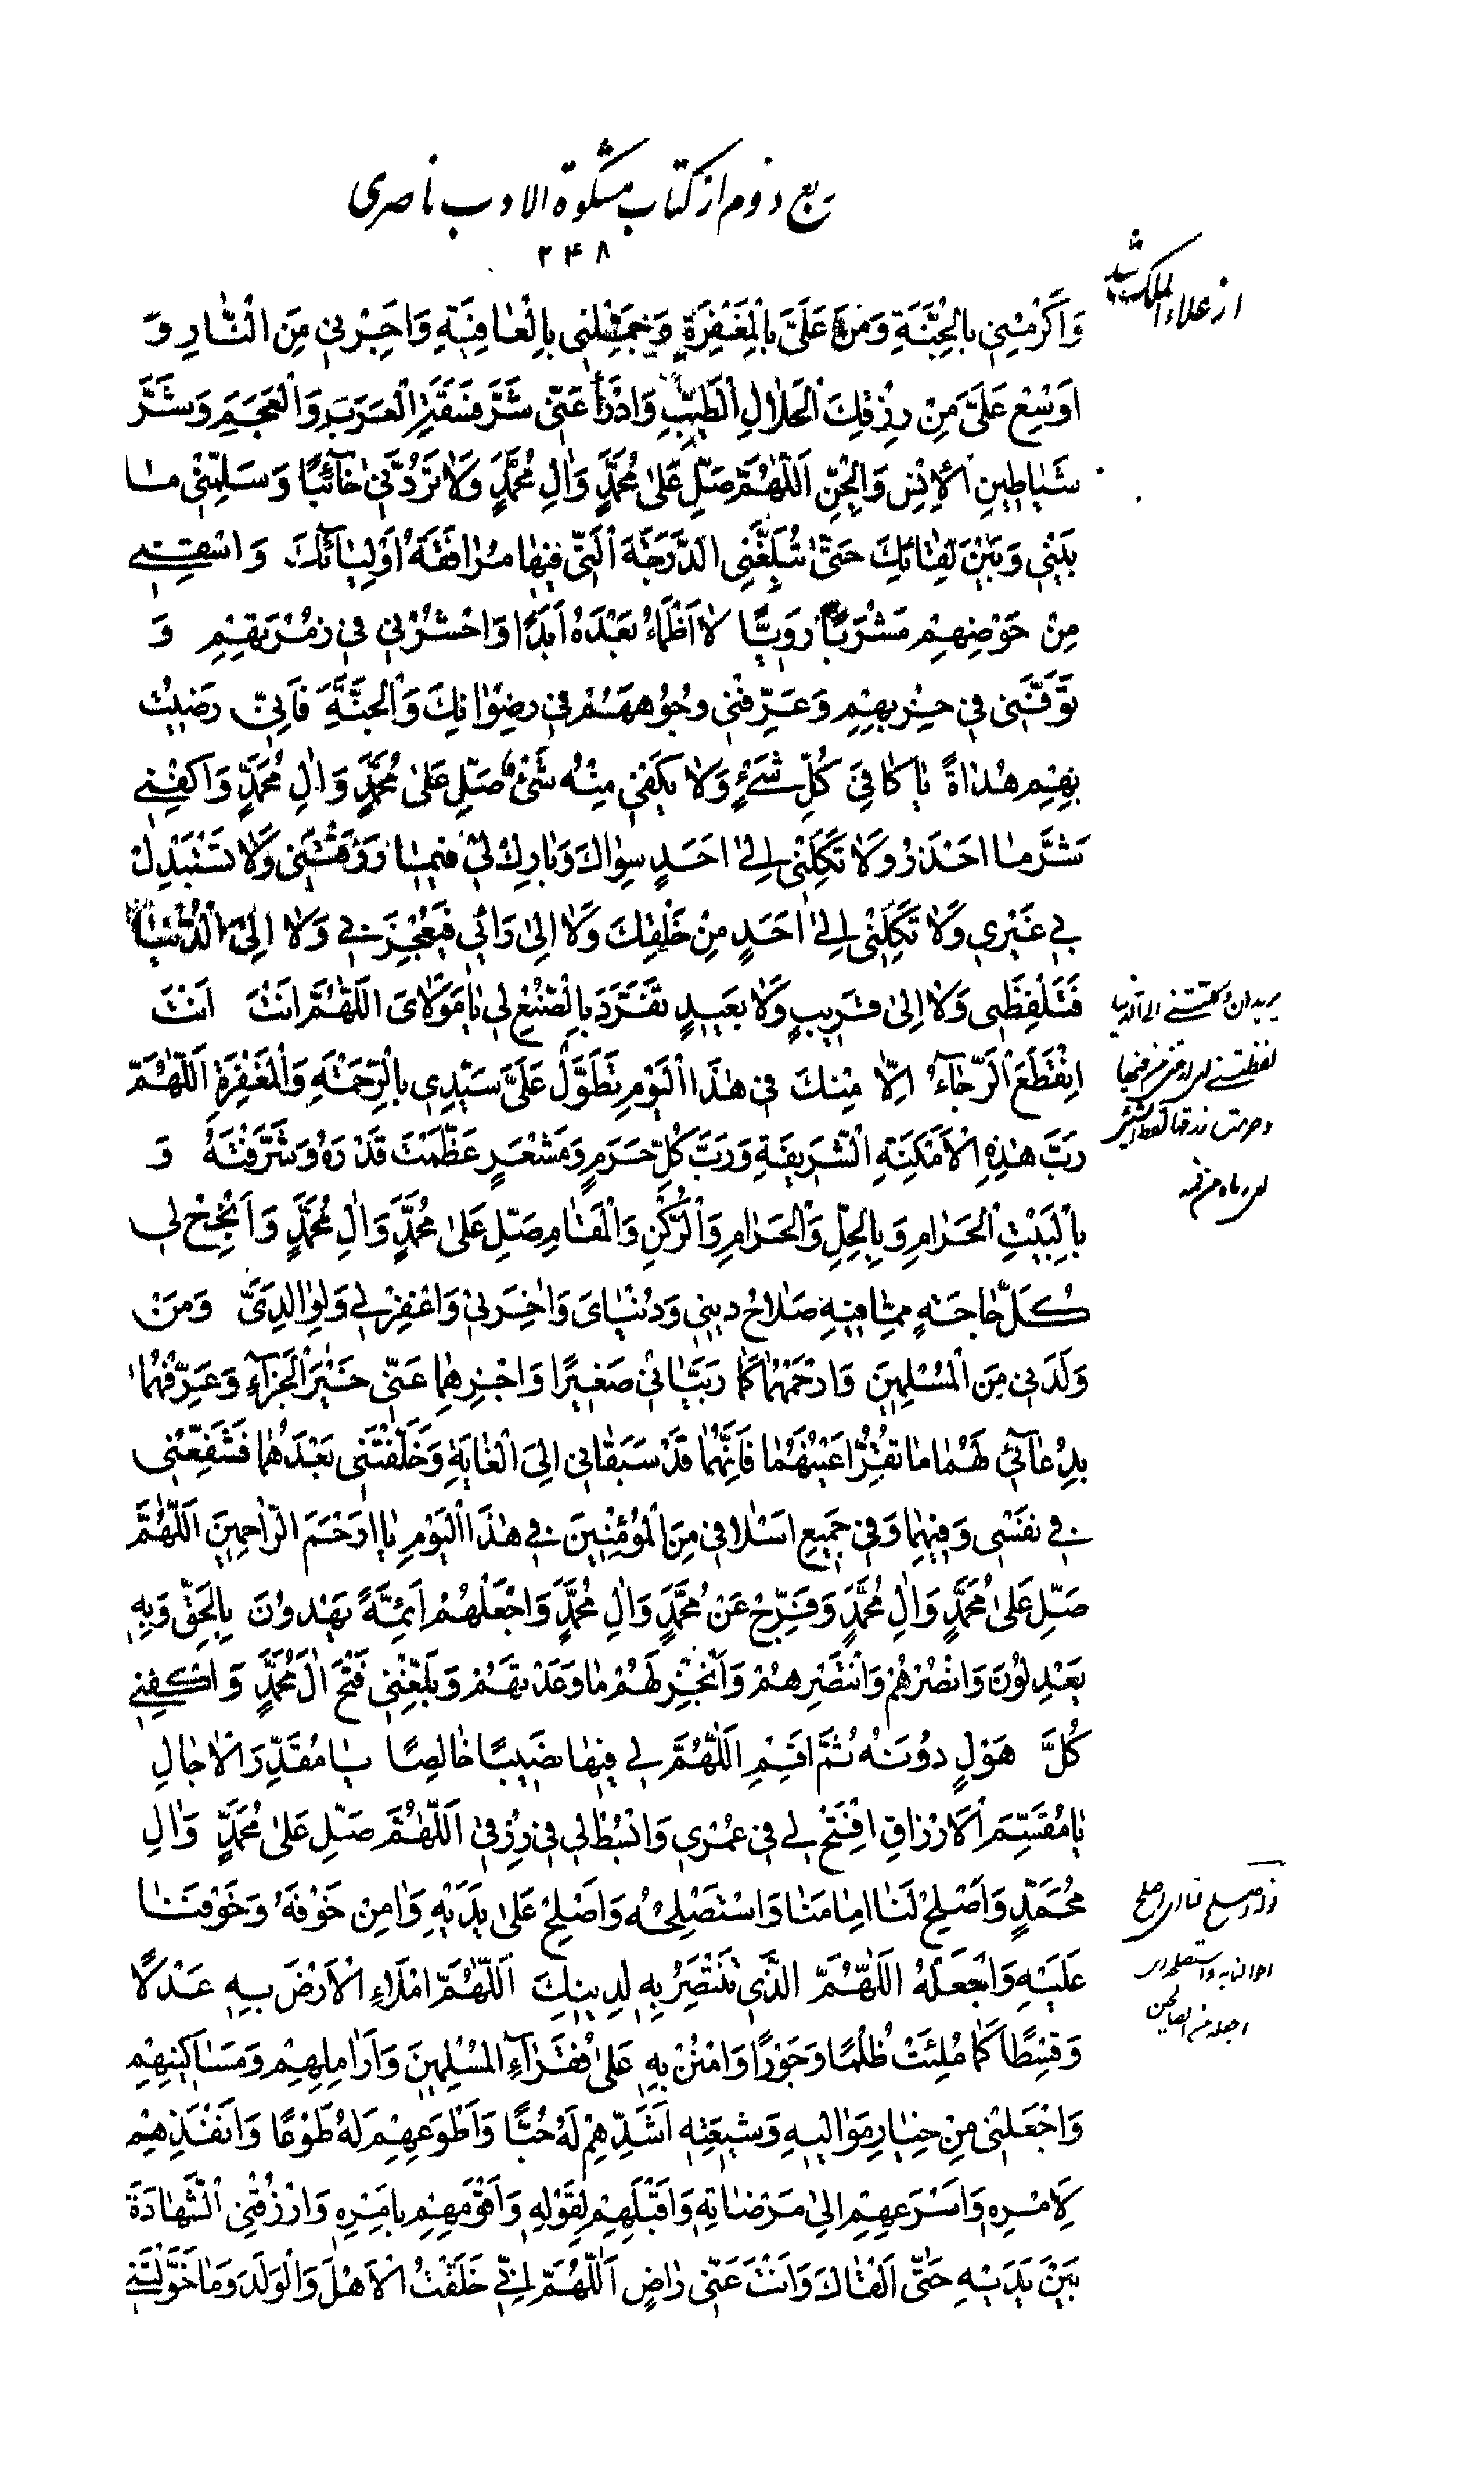 ربع دوم از کتاب مشکوة الادب ناصری
۲۴۸
وَاَکْرِمْنِی بِالْجَنَّةِ وَمُنَّ عَلَیَّ بِالْمَغْفِرَةِ وَجَمِّلْنِی بِالْعٰافِیَةِ وَاَجِرْنِی مِنَ النّٰارِ وَ
اَوْسِعْ عَلَیَّ مِنْ رِزْقِکَ الْحَلٰالِ الطَّیِّبِ وَادْرَأْ عَنِّی شَرَّ فَسَقَةِ الْعَرَبِ وَالْعَجَمِ وَشَرَّ
شَیٰاطِینِ الْاِنْسِ وَالْجِنِّ اَللّٰهُمَّ صَلِّ عَلیٰ مُحَمَّدٍ وَاٰلِ مُحَمَّدٍ وَلٰا تَرُدَّنِی خٰائِبًا وَسَلِّمْنِی مٰا
بَیْنِی وَبَیْنَ لِقٰائِکَ حَتّیٰ تُبَلِّغَنِی الدَّرَجَةَ الَّتِی فِیهٰا مُرٰافَقَةُ اَوْلِیٰائِکَ وَاسْقِنِی
مِنْ حَوْضِهِمْ مَشْرَبًا رَوِیًّا لٰا اَظْمَاُ بَعْدَهُ اَبَدًا وَاحْشُرْنِی فِی زُمْرَتِهِمْ وَ
تَوَفَّنِی فِی حِزْبِهِمْ وَعَرِّفْنِی وُجُوهَهُمْ فِی رِضْوٰانِکَ وَالْجَنَّةِ فَاِنِّی رَضِیتُ
بِهِمْ هُدٰاةً یٰا کٰافِیَ کُلِّ شَیْءٍ وَلٰا یَکْفِی مِنْهُ شَیْءٌ صَلِّ عَلیٰ مُحَمَّدٍ وَاٰلِ مُحَمَّدٍ وَاکْفِنِی
شَرَّ مٰا اَحْذَرُ وَلٰا تَکِلْنِی اِلیٰ اَحَدٍ سِوٰاکَ وَبٰارِکْ لِی فِیمٰا رَزَقْتَنِی وَلٰا تَسْتَبْدِلْ
بِی غَیْرِی وَلٰا تَکِلْنِی اِلیٰ اَحَدٍ مِنْ خَلْقِکَ وَلٰا اِلیٰ رَاْیِی فَیُعْجِزَنِی وَلٰا اِلَی الدُّنْیٰا
فَتَلْفِظَنِی وَلٰا اِلیٰ قَرِیبٍ وَلٰا بَعِیدٍ تَفَرَّدَ بِالصُّنْعِ لِی یٰا مَوْلٰایَ اَللّٰهُمَّ اَنْتَ اَنْتَ
اِنْقَطَعَ الرَّجٰاءُ اِلّٰا مِنْکَ فِی هٰذَا الْیَوْمِ تَطَوَّلْ عَلَیَّ سَیِّدِی بِالرَّحْمَةِ وَالْمَغْفِرَةِ اَللّٰهُمَّ
رَبَّ هٰذِهِ الْاَمْکِنَةِ الشَّرِیفَةِ وَرَبَّ کُلِّ حَرَمٍ وَمَشْعَرٍ عَظَّمْتَ قَدْرَهُ وَشَرَّفْتَهُ وَ
بِالْبَیْتِ الْحَرٰامِ وَبِالْحِلِّ وَالْحَرٰامِ وَالرُّکْنِ وَالْمَقٰامِ صَلِّ عَلیٰ مُحَمَّدٍ وَاٰلِ مُحَمَّدٍ وَاَنْجِحْ لِی
کُلَّ حٰاجَةٍ مِمّٰا فِیهِ صَلٰاحُ دِینِی وَدُنْیٰایَ وَاٰخِرَتِی وَاغْفِرْ لِی وَلِوٰالِدَیَّ وَمَنْ
وَلَدَنِی مِنَ الْمُسْلِمِینَ وَارْحَمْهُمٰا کَمٰا رَبَّیٰانِی صَغِیرًا وَاجْزِهِمٰا عَنِّی خَیْرَ الْجَزٰاءِ وَعَرِّفْهُمٰا
بِدُعٰائِی لَهُمٰا مٰا تُقِرُّ اَعْیُنَهُمٰا فَاِنَّهُمٰا قَدْ سَبَقٰانِی اِلَی الْغٰایَةِ وَخَلَّفْتَنِی بَعْدَهُمٰا فَشَفِّعْنِی
فِی نَفْسِی وَفِیهِمٰا وَفِی جَمِیعِ اَسْلٰافِی مِنَ الْمُؤْمِنِینَ فِی هٰذَا الْیَوْمِ یٰا اَرْحَمَ الرّٰاحِمِینَ اَللّٰهُمَّ
صَلِّ عَلیٰ مُحَمَّدٍ وَاٰلِ مُحَمَّدٍ وَفَرِّجْ عَنْ مُحَمَّدٍ وَاٰلِ مُحَمَّدٍ وَاجْعَلْهُمْ اَئِمَّةً یَهْدُونَ بِالْحَقِّ وَبِهِ
یَعْدِلُونَ وَانْصُرْهُمْ وَانْتَصِرْ بِهِمْ وَاَنْجِزْ لَهُمْ مٰا وَعَدْتَهُمْ وَبَلِّغْنِی فَتْحَ اٰلِ مُحَمَّدٍ وَاکْفِنِی
کُلَّ هَوْلٍ دُونَهُ ثُمَّ اقْسِمِ اَللّٰهُمَّ لِی فِیهٰا نَصِیبًا خٰالِصًا یٰا مُقَدِّرَ الْاٰجٰالِ
یٰا مُقَسِّمَ الْاَرْزٰاقِ افْتَحْ لِی فِی عُمْرِی وَابْسُطْ لِی فِی رِزْقِی اَللّٰهُمَّ صَلِّ عَلیٰ مُحَمَّدٍ وَاٰلِ
مُحَمَّدٍ وَاَصْلِحْ لَنٰا اِمٰامَنٰا وَاسْتَصْلِحْهُ وَاَصْلِحْ عَلیٰ یَدَیْهِ وَاٰمِنْ خَوْفَهُ وَخَوْفَنٰا
عَلَیْهِ وَاجْعَلْهُ اَللّٰهُمَّ الَّذِی تَنْتَصِرُ بِهِ لِدِینِکَ اَللّٰهُمَّ امْلَاءِ الْاَرْضَ بِهِ عَدْلًا
وَقِسْطًا کَمٰا مُلِئَتْ ظُلْمًا وَجَوْرًا وَامْنُنْ بِهِ عَلیٰ فُقَرٰاءِ الْمُسْلِمِینَ وَاَرٰامِلِهِمْ وَمَسٰاکِینِهِمْ
وَاجْعَلْنِی مِنْ خِیٰارِ مَوٰالِیهِ وَشِیعَتِهِ اَشَدِّهِمْ لَهُ حُبًّا وَاَطْوَعِهِمْ لَهُ طَوْعًا وَاَنْفَذِهِمْ
لِاَمْرِهِ وَاَسْرَعِهِمْ اِلیٰ مَرْضٰاتِهِ وَاَقْبَلِهِمْ لِقَوْلِهِ وَاَقْوَمِهِمْ بِاَمْرِهِ وَارْزُقْنِی الشَّهٰادَةَ
بَیْنَ یَدَیْهِ حَتّیٰ اَلْقٰاکَ وَاَنْتَ عَنِّی رٰاضٍ اَللّٰهُمَّ اِنِّی خَلَّفْتُ الْاَهْلَ وَالْوَلَدَ وَمٰا خَوَّلْتَنِی
از علاء الملک
یرید ان وکلتنی الی الدنیا